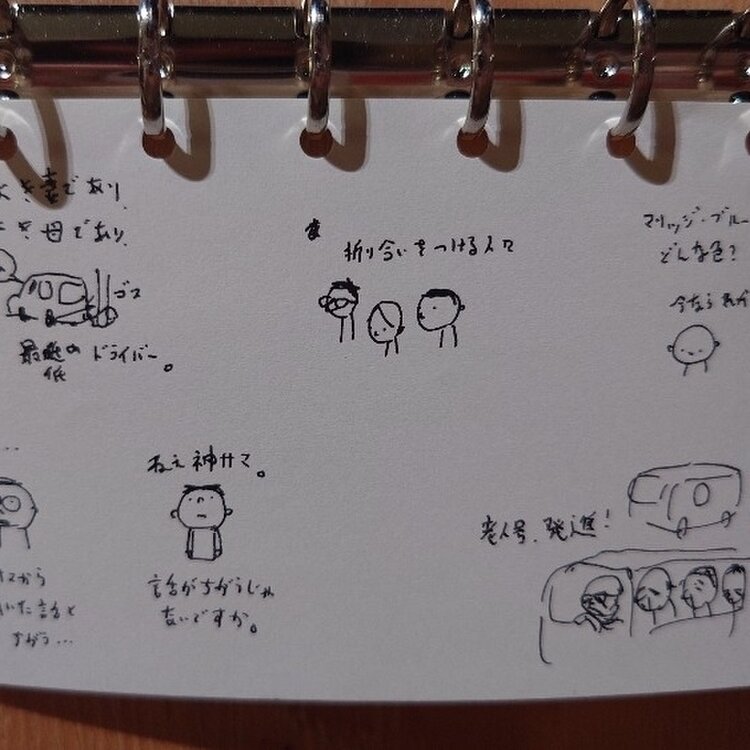 よき妻であり、
よき母であり、
ゴス
最低の ドライバー。
折り合いをつける人々
マリッジ・ブルー
どんな色?
今なら
ねえ神サマ。
話がちがうじゃ
ないですか。
から
いた話と
ちがう…
老人号、発進!